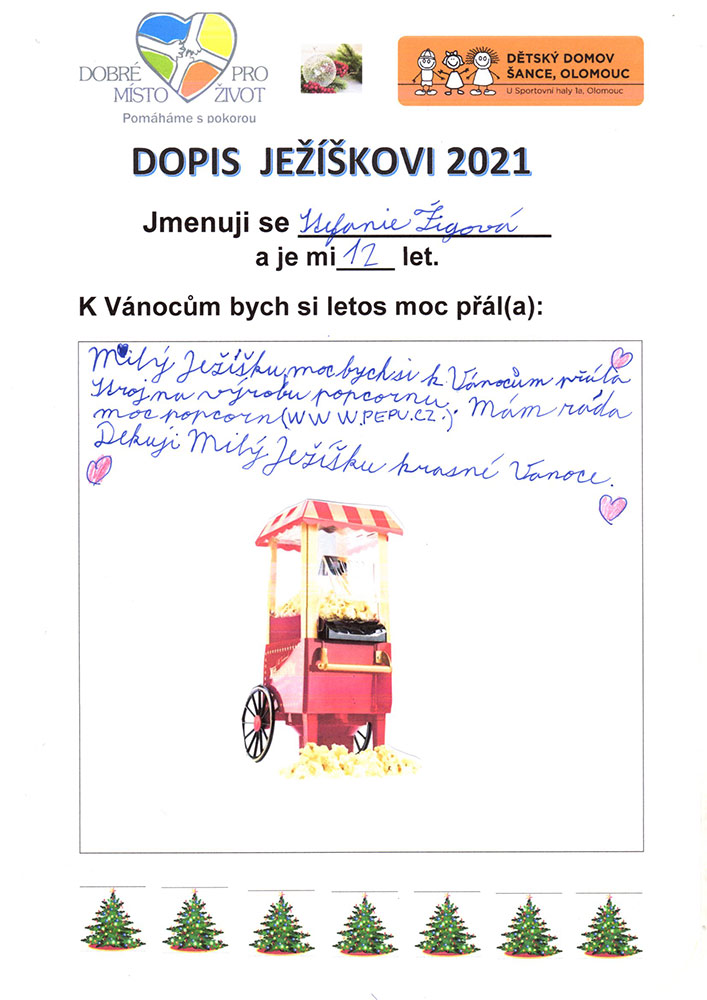 DOBRÉ PRO
MÍSTO ŽIVOT
Pomáháme s pokorou
DĚTSKÝ DOMOV
ŠANCE, OLOMOUC
U Sportovní haly 1a, Olomouc
DOPIS JEŽÍŠKOVI 2021
Jmenuji se Stefanie Žigová
a je mi 12 let.
K Vánocům bych si letos moc přál(a):
Milý Ježíšku, moc bych si k Vánocům přála
stroj na výrobu popcornu. Mám ráda
moc popcorn (WWW.PEPU.CZ.).
Dekuji Milý Ježíšku krasné Vanoce.